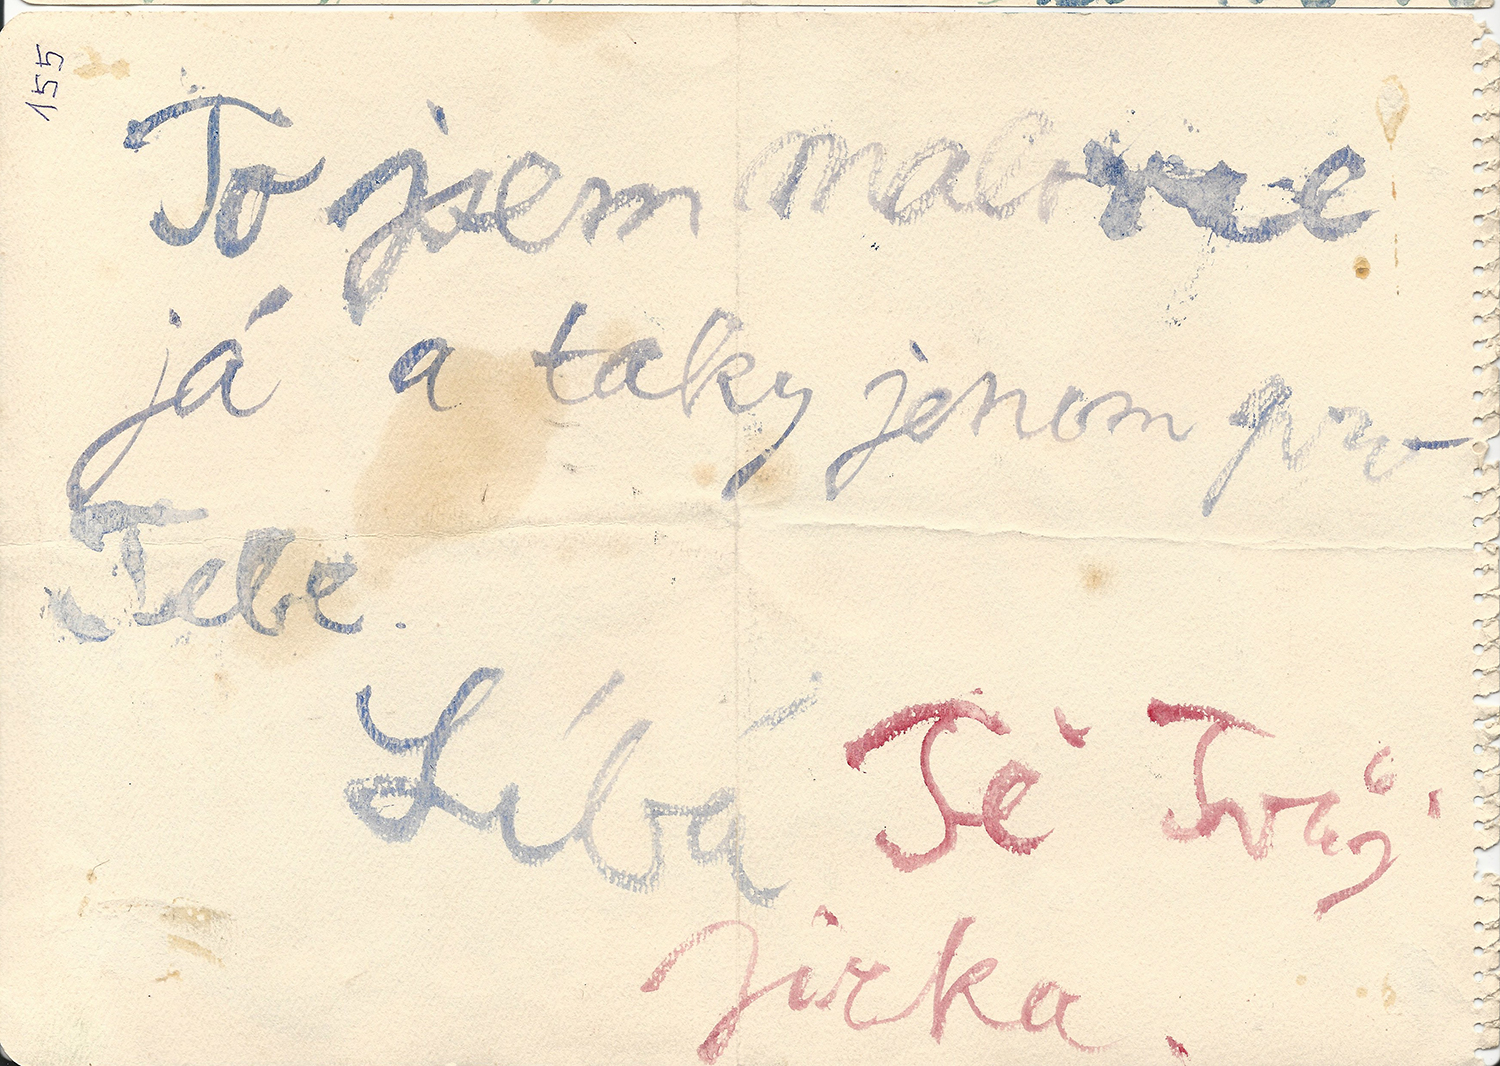 155
To jsem
já a taky jenom pro
Tebe.
Líbá Tě Tvůj
Jirka.